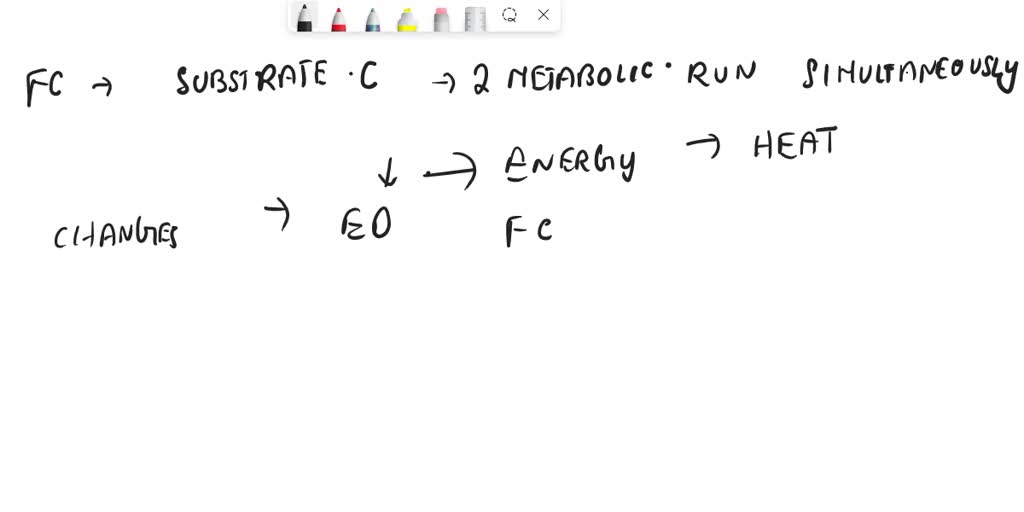 FC → SUBSTRATE · C → 2 METABOLIC · RUN SIMULTANEOUSLY
↓ → ENERGY → HEAT
CHANGES → EO FC